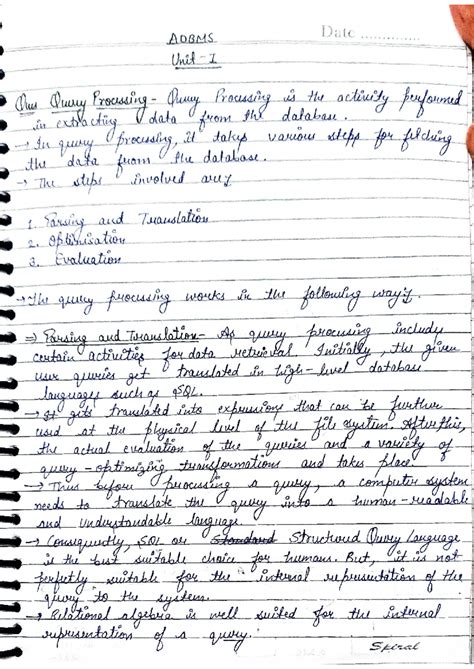 ADBMS
Date ..............
Unit - I
Ques Query Processing - Query Processing is the activity performed
in extracting data from the database.
→ In query processing, it takes various steps for fetching
the data from the database.
→ The steps involved are:
1. Parsing and Translation
2. Optimisation
3. Evaluation
→ The query processing works in the following way:
⇒ Parsing and Translation - As query processing include
certain activities for data retrieval. Initially, the given
user queries get translated in high-level database
languages such as SQL.
→ It gets translated into expressions that can be further
used at the physical level of the file system. After this,
the actual evaluation of the queries and a variety of
query - optimizing transformations and takes place.
→ Thus before processing a query, a computer system
needs to translate the query into a human-readable
and understandable language.
→ Consequently, SQL or Standard Structured Query Language
is the best suitable choice for humans. But, it is not
perfectly suitable for the internal representation of the
query to the system.
→ Relational algebra is well suited for the internal
representation of a query.
Spiral